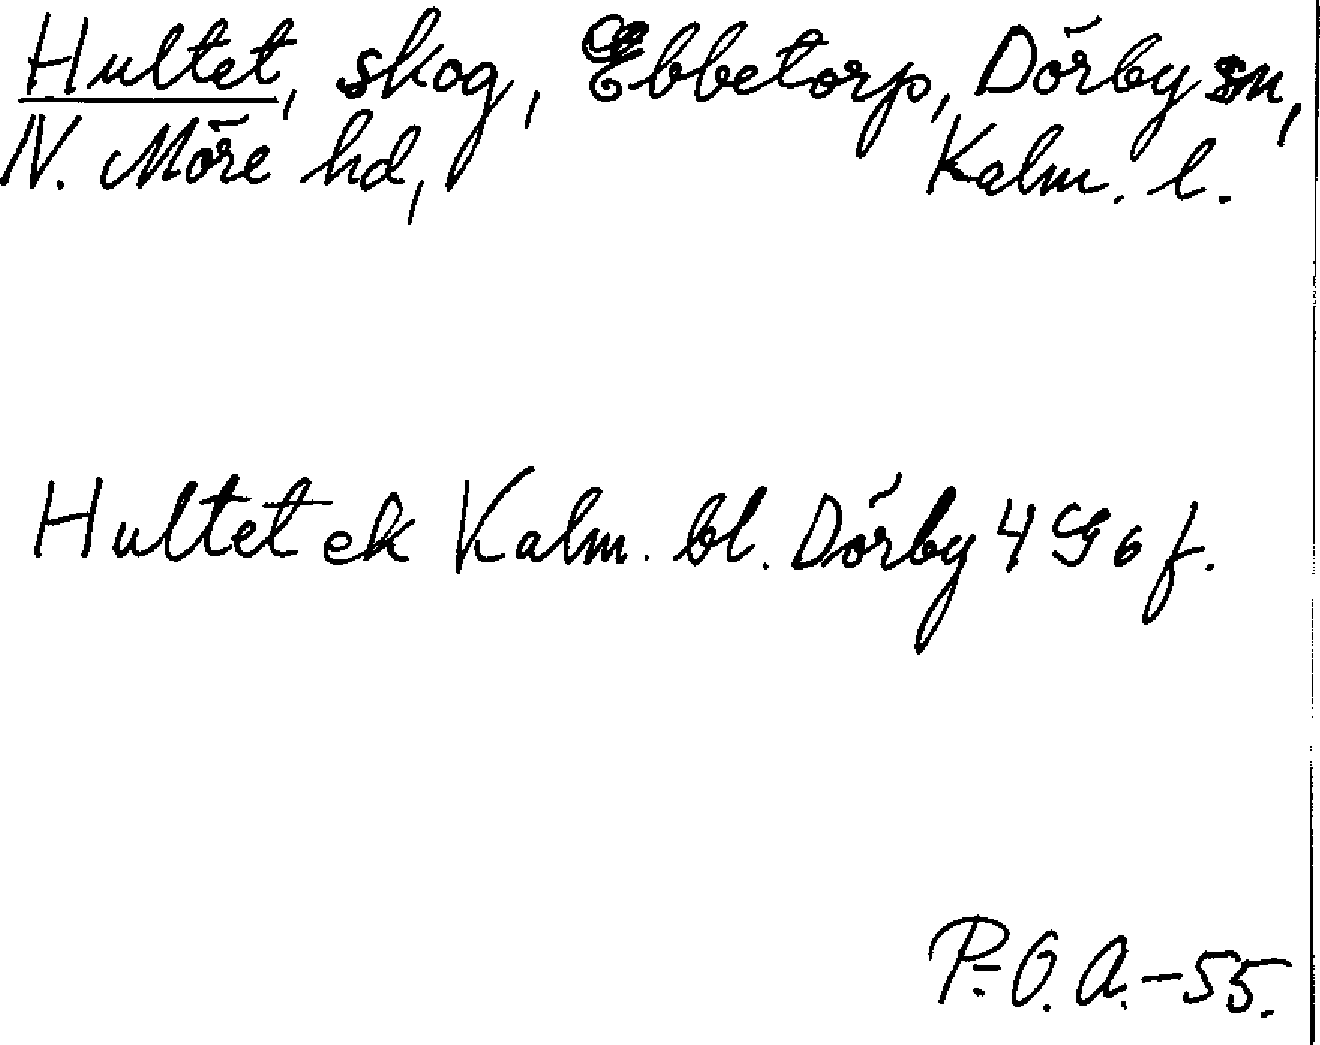 Hultet, skog, Ebbetorp, Dörby sn,
N. Möre hd, Kalm. l.
Hultet ek Kalm. bl. Dörby 4 G 6 f.
P.-O. A. -55.